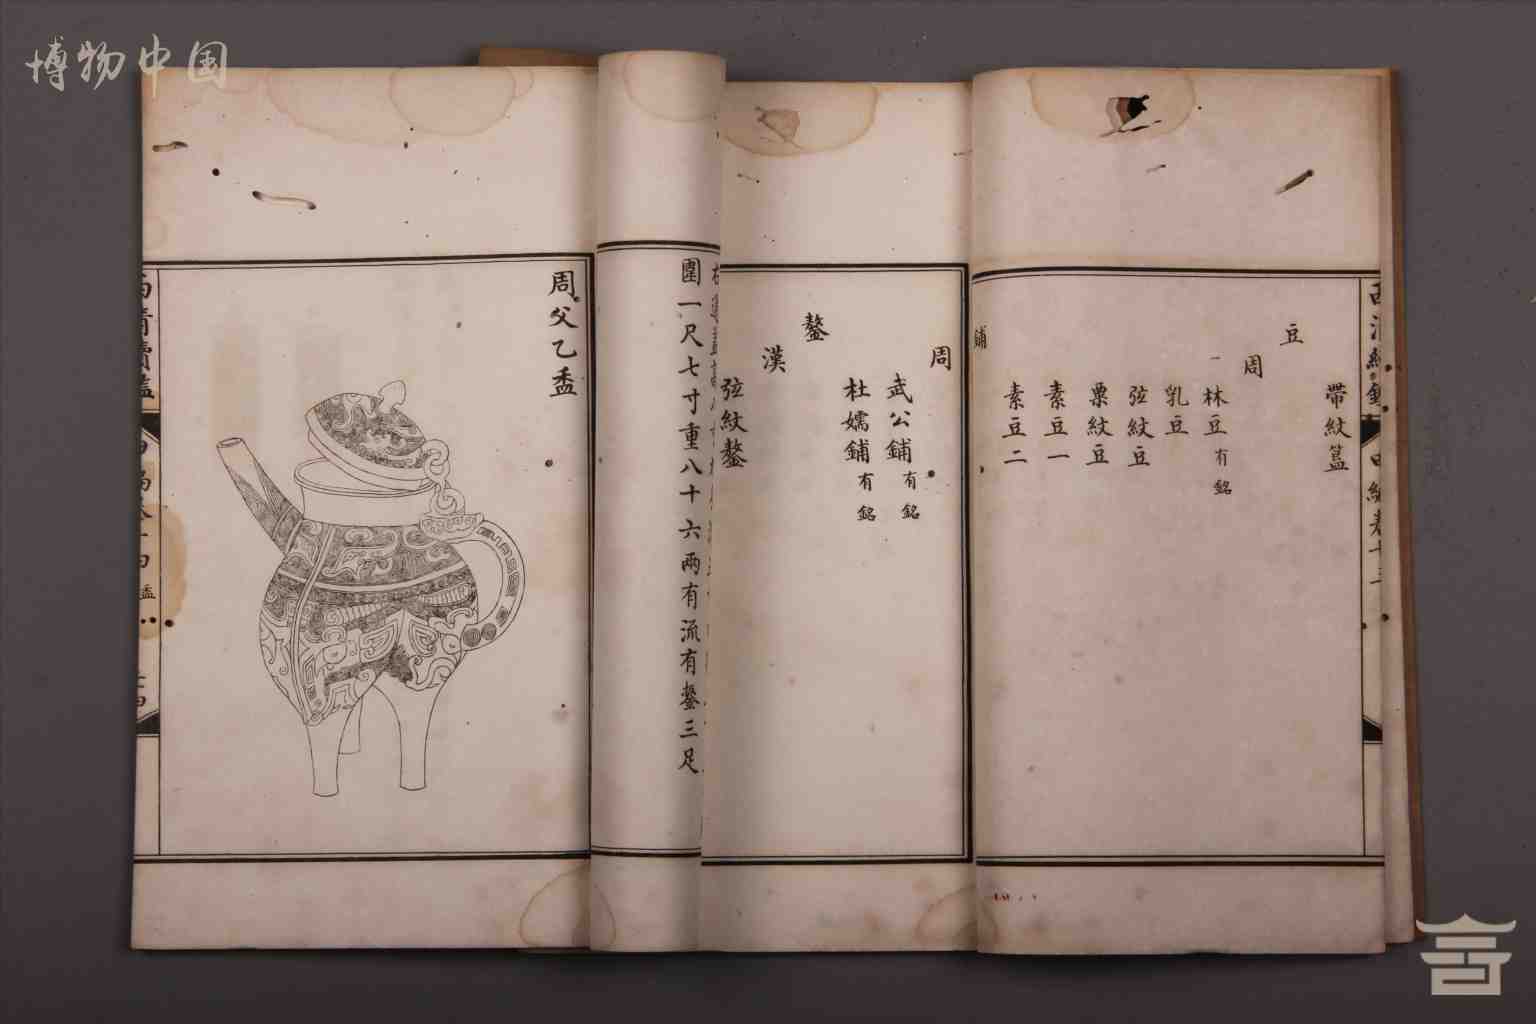 博物中国
帶紋簋
豆
周
林豆 有銘
乳豆
弦紋豆
粟紋豆
素豆一
素豆二
鋪
周
武公鋪 有銘
杜嬬鋪 有銘
鏊
漢
弦紋鏊
圍一尺七寸重八十六兩有流有鋬三足
周父乙盉
西清續鑑
甲編卷十三
盉